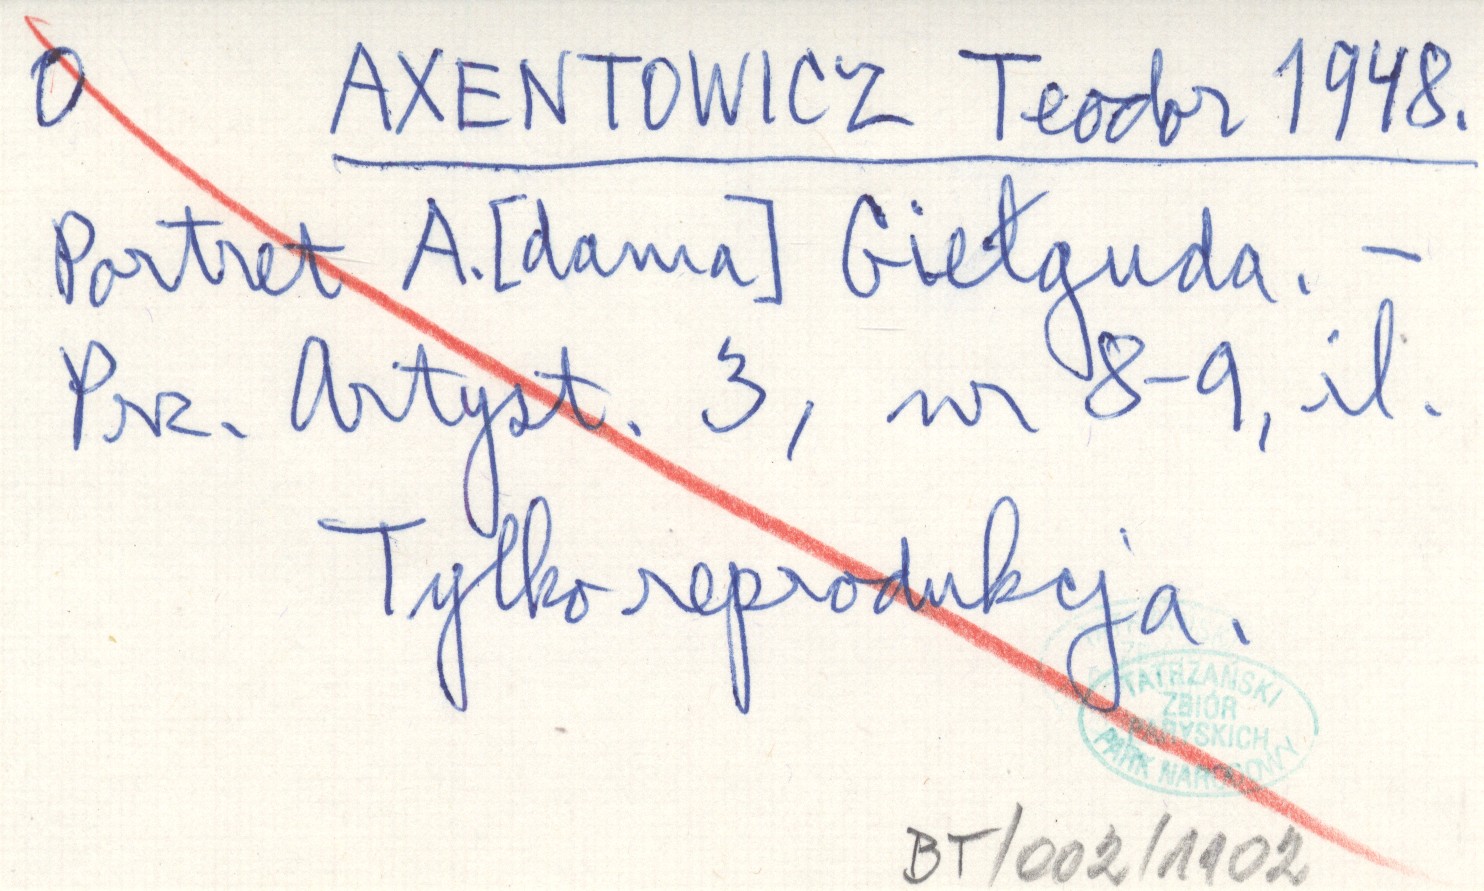 O AXENTOWICZ Teodor 1948.
Portret A.[dama] Giełguda. –
Prz. Artyst. 3, nr 8-9, il.
Tylko reprodukcja.
TATRZAŃSKI
ZBIÓR
PARYSKICH
PARK NARODOWY
BT/002/1102